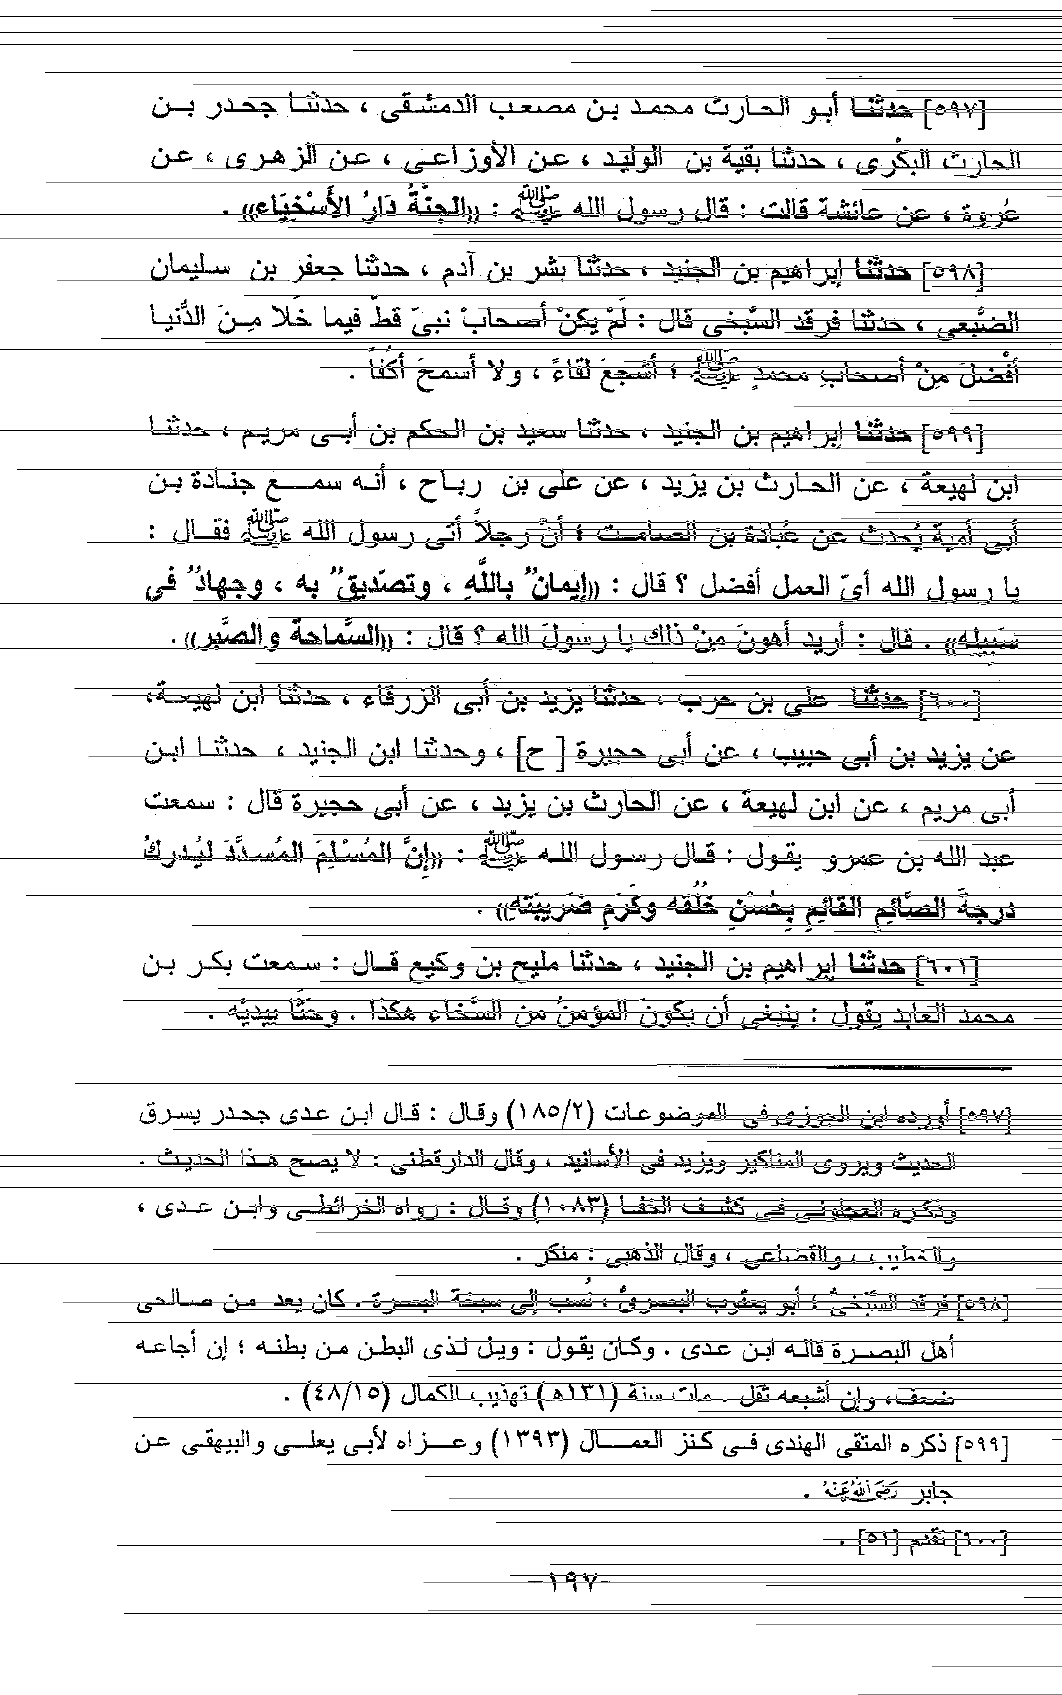 [٥٩٧] حدثنا أبو الحارث محمد بن مصعب الدمشقى ، حدثنا جحدر بن
الحارث البكرى ، حدثنا بقية بن الوليد ، عن الأوزاعى ، عن الزهرى ، عن
عروة ، عن عائشة قالت : قال رسول الله ﷺ : «الجنَّةُ دَارُ الأَسْخيَاءِ» .
[٥٩٨] حدثنا إبراهيم بن الجنيد ، حدثنا بشر بن آدم ، حدثنا جعفر بن سليمان
الضبعى ، حدثنا فرقد السَّبخى قال : لَمْ يكنْ أصحابُ نبىّ قطّ فيما خَلا مِنَ الدُّنيا
أفْضلَ مِنْ أصحابِ محمدٍ ﷺ ؛ أشجعَ لقاءً ، ولا أسمحَ أكُفاً .
[٥٩٩] حدثنا إبراهيم بن الجنيد ، حدثنا سعيد بن الحكم بن أبى مريم ، حدثنا
ابن لهيعة ، عن الحارث بن يزيد ، عن على بن رباح ، أنه سمع جنادة بن
أبى أمية يُحدث عن عُبادة بن الصامت ؛ أنَّ رجلاً أتى رسول الله ﷺ فقال :
يا رسول الله أىّ العمل أفضل ؟ قال : «إيمانٌ باللَّهِ ، وتصديقٌ به ، وجهادٌ فى
سَبيله» . قال : أريد أهونَ مِنْ ذلك يا رسولَ الله ؟ قال : «السَّماحةُ والصَّبر» .
[٦٠٠] حدثنا على بن حرب ، حدثنا يزيد بن أبى الزرقاء ، حدثنا ابن لهيعة،
عن يزيد بن أبى حبيب ، عن أبى حجيرة [ ح] ، وحدثنا ابن الجنيد ، حدثنا ابن
أبى مريم ، عن ابن لهيعة ، عن الحارث بن يزيد ، عن أبى حجيرة قال : سمعت
عبد الله بن عمرو يقول : قال رسول الله ﷺ : «إنَّ المُسْلِمَ المُسدَّدَ ليُدركُ
درجةَ الصَّائمِ القائمِ بِحُسْنِ خُلُقه وكَرَمِ ضَريبَتهِ» .
[٦٠١] حدثنا إبراهيم بن الجنيد ، حدثنا مليح بن وكيع قال : سمعت بكر بن
محمد العابد يقول : ينبغى أن يكونَ المؤمنُ من السَّخاء هكذا . وحَثَّا بيديْه .
[٥٩٧] أورده ابن الجوزى فى الموضوعات (١٨٥/٢) وقال : قال ابن عدى جحدر يسرق
الحديث ويروى المناكير ويزيد فى الأسانيد ، وقال الدارقطنى : لا يصح هذا الحديث .
وذكره العجلونى فى كشف الخفا (١٠٨٣) وقال : رواه الخرائطى وابن عدى ،
والخطيب ، والقضاعى ، وقال الذهبى : منكر .
[٥٩٨] فرقد السَّبَخىُّ ؛ أبو يعقوب البصرىُّ ، نُسب إلى سبخة البصرة . كان يعد من صالحى
أهل البصرة قاله ابن عدى . وكان يقول : ويل لذى البطن من بطنه ؛ إن أجاعه
ضعف، وإن أشبعه ثقل . مات سنة (١٣١هـ) تهذيب الكمال (٤٨/١٥) .
[٥٩٩] ذكره المتقى الهندى فى كنز العمال (١٣٩٣) وعزاه لأبى يعلى والبيهقى عن
جابر رَضِىَ اللهُ عَنْهُ .
[٦٠٠] تقدم [٥١] .
-١٩٧-